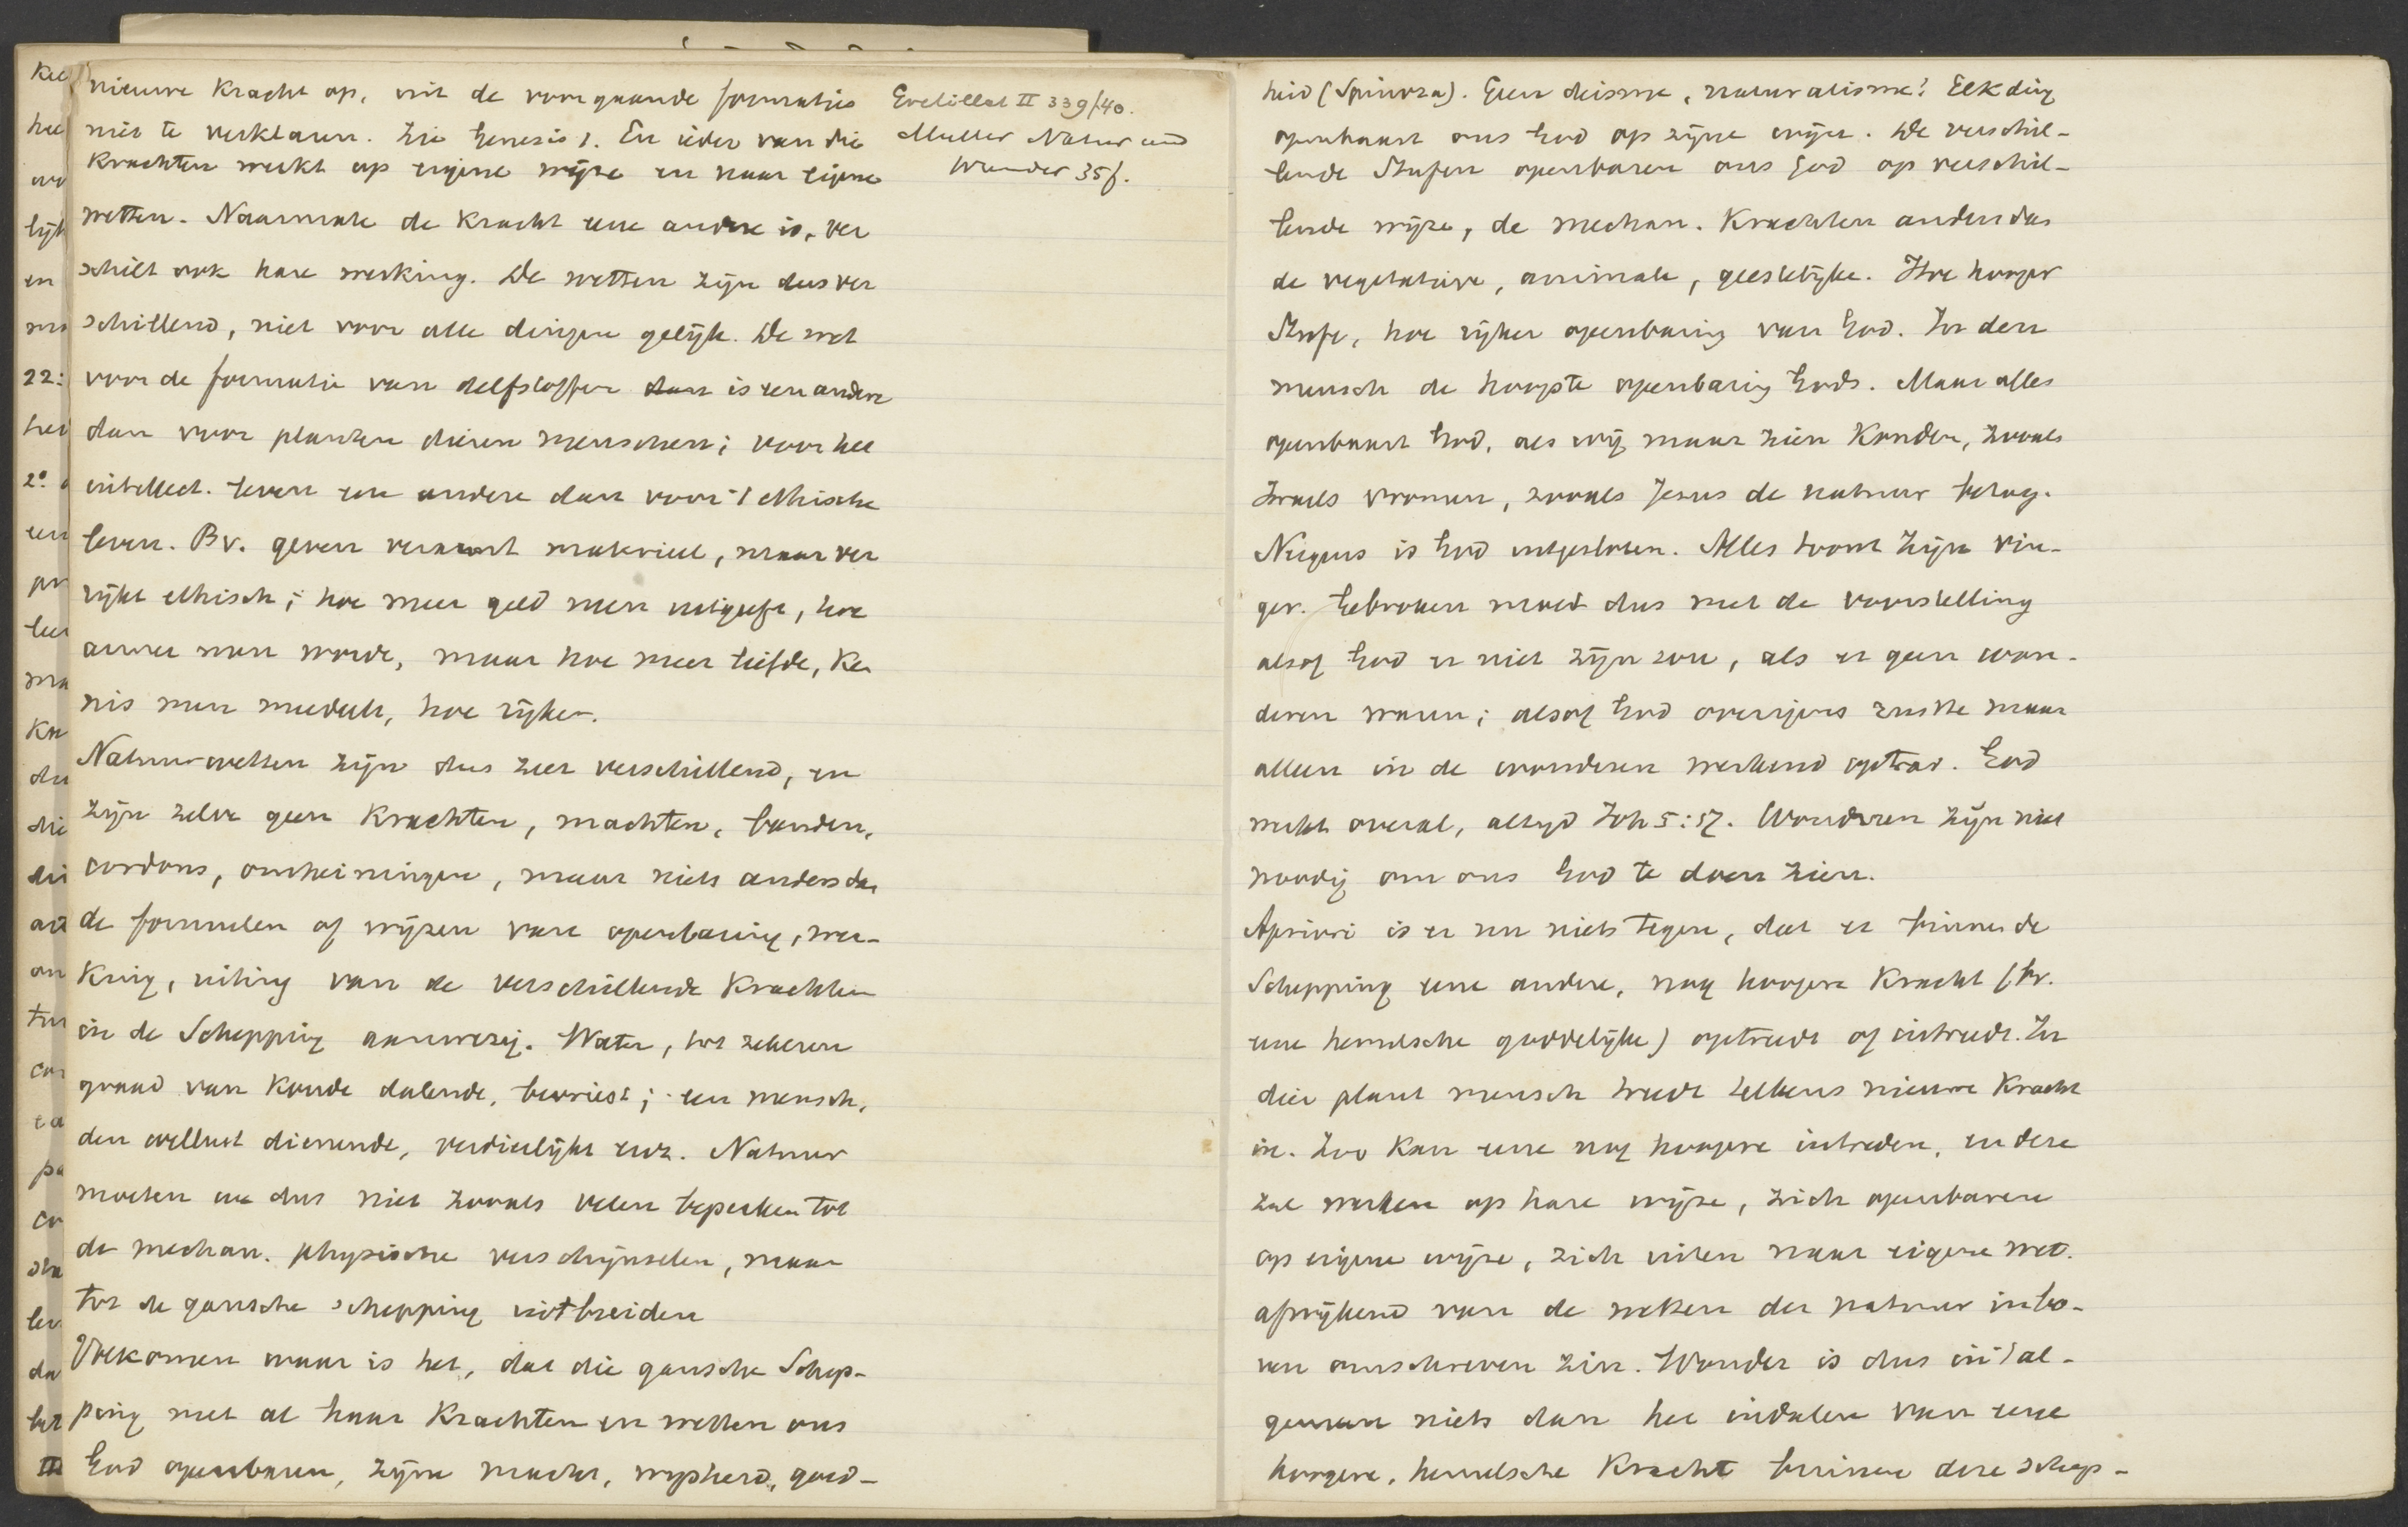 nieuwe Kracht op, uit de voorgaande formaties
niet te verklaren. Zie Genesis 1. En ieder van die
Krachten werkt op eigene wijze en naar eigene
wetten. Naarmate de Kracht eene andere is, ver
schilt ook hare werking. De wetten zijn dus ver
schillend, niet voor alle dingen gelijk. De wet
voor de formatie van delfstoffen is een andere
dan voor planten dieren menschen; voor het
intellect. leven een andere dan voor 't ethische
leven. Bv. geven verarmt materieel, maar ver
rijkt ethisch; hoe meer geld men uitgeeft, hoe
armer men worde, maar hoe meer liefde, Ken
nis men meedeelt, hoe rijker.
Natuurwetten zijn dus zeer verschillend, en
zijn zelve geen Krachten, machten, banden,
cordons, omheiningen, maar niets anders dan
de formulen of wijzen van openbaring, wer-
King, uiting van de verschillende Krachten
in de Schepping aanwezig. Water, tot zekeren
graad van Koude dalende, bevriest; een mensch,
den wellust dienende, verdierlijkt enz. Natuur
moeten we dus niet zooals velen beperken tot
de mechan. physische verschijnselen, maar
tot de gansche schepping uitbreiden
Volkomen waar is het, dat die gansche Schep-
ping met al haar Krachten en wetten ons
God openbaren, zijne macht, wijsheid, goed-
Gretillat II 339/40.
Muller Natur und
Wunder 35f.
heid (Spinoza). Geen deisme, naturalisme! Elk ding
openbaart ons God op zijne wijze. De verschil-
lende Stufen openbaren ons God op verschil-
lende wijze, de mechan. Krachten anders dan
de vegetatieve, animale, geestelijke. Hoe hooger
Stufe, hoe rijker openbaring van God. In den
mensch de hoogste openbaring Gods. Maar alles
openbaart God, als wij maar zien Konden, zooals
Israels vromen, zooals Jezus de natuur bezag.
Nergens is God uitgesloten. Alles toont Zijn vin-
ger. Gebroken moet dus met de voorstelling
alsof God er niet zijn zou, als er geen won-
deren waren; alsof God overigens rustte maar
alleen in de wonderen werkend optrad. God
werkt overal, altijd Joh 5:17. Wonderen zijn niet
noodig om ons God te doen zien.
Apriori is er nu niets tegen, dat er binnen de
Schepping eene andere, nog hoogere Kracht (bv.
eene hemelsche goddelijke) optreede of intreede. In
dier plant mensch treedt telkens nieuwe Kracht
in. Zoo Kan eene nog hoogere intreden, en deze
zal werken op hare wijze, zich openbaren
op eigene wijze, zich uiten naar eigene wet.
afwijkend van de wetten der natuur in bo-
ven omschreven zin. Wonder is dus in 't al-
gemeen niets dan het indalen van eene
hoogere, hemelsche Kracht binnen deze schep-